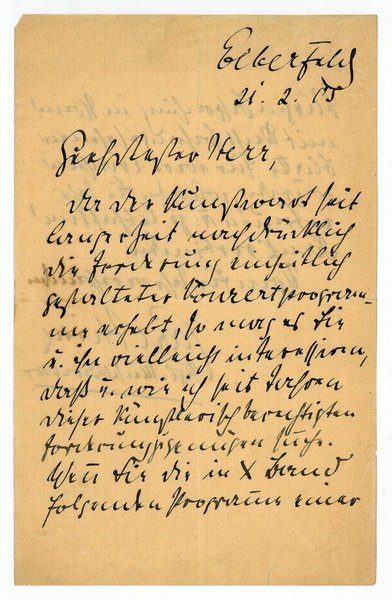 Elberfeld
21. 2. 05
Hochgeehrter Herr,
da der Kunstwart seit
langer Zeit nachdrücklich
die Forderung einheitlich
gestalteter Konzertprogram-
me erhebt, so mag es Sie
u. ihn vielleicht interessiren,
daß u. wie ich seit Jahren
dieser künstlerisch berechtigten
Forderung genügen suche.
Wenn Sie die in X Band
folgenden Programme einer